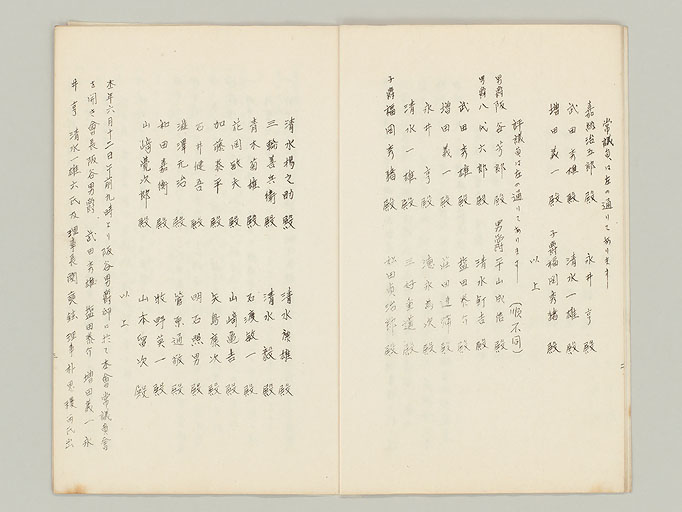 常議員は左の通りであります
嘉納治五郎 殿 永井 亨 殿
武田秀雄 殿 清水一雄 殿
増田義一 殿 子爵福岡秀猪 殿
以上
評議員は左の通りであります (順不同)
男爵阪谷芳郎 殿 男爵平山成信 殿
男爵八代六郎 殿 清水釘吉 殿
武田秀雄 殿 益田 殿
増田義一 殿 荘田達弥 殿
永井 亨 殿 徳永 次 殿
清水一雄 殿 三好重道 殿
子爵福岡秀猪 殿 松田貞治郎 殿
清水揚之助 殿 清水康雄 殿
三輪善兵衛 殿 清水 毅 殿
青木菊雄 殿 石渡敏一 殿
荘田 夫 殿 山崎亀吉 殿
加藤恭平 殿 矢島 次 殿
石井健吾 殿 明石照男 殿
渋澤元治 殿 菅原通敬 殿
和田嘉衡 殿 牧野英一 殿
山崎覚次郎 殿 山本留次 殿
以上
本年六月十二日午前九時より阪谷男爵邸に於て本會常議員會
を開き會長阪谷男爵 武田秀雄 益田 増田義一 永
井亨 清水一雄六氏及理事長関 理事朴思稷両氏出
二